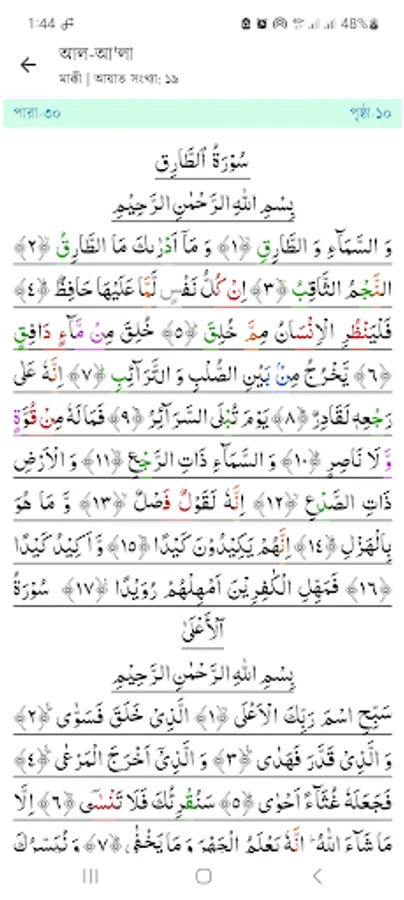 1:44
48%
আল-আ'লা
মাক্কী | আয়াত সংখ্যা: ১৯
পারা-৩০ পৃষ্ঠা-১০
سُوْرَةُ ٱلطَّارِق
بِسْمِ اللهِ الرَّحْمٰنِ الرَّحِيْمِ
وَ السَّمَآءِ وَ الطَّارِقِ ﴿١﴾ وَ مَآ اَدْرٰىكَ مَا الطَّارِقُ ﴿٢﴾
النَّجْمُ الثَّاقِبُ ﴿٣﴾ اِنْ كُلُّ نَفْسٍ لَّمَّا عَلَيْهَا حَافِظٌ ﴿٤﴾
فَلْيَنْظُرِ الْاِنْسَانُ مِمَّ خُلِقَ ﴿٥﴾ خُلِقَ مِنْ مَّآءٍ دَافِقٍ
﴿٦﴾ يَّخْرُجُ مِنْۢ بَيْنِ الصُّلْبِ وَ التَّرَآئِبِ ﴿٧﴾ اِنَّهٗ عَلٰى
رَجْعِهٖ لَقَادِرٌ ﴿٨﴾ يَوْمَ تُبْلَى السَّرَآئِرُ ﴿٩﴾ فَمَا لَهٗ مِنْ قُوَّةٍ
وَّ لَا نَاصِرٍ ﴿١٠﴾ وَ السَّمَآءِ ذَاتِ الرَّجْعِ ﴿١١﴾ وَ الْاَرْضِ
ذَاتِ الصَّدْعِ ﴿١٢﴾ اِنَّهٗ لَقَوْلٌ فَصْلٌ ﴿١٣﴾ وَّ مَا هُوَ
بِالْهَزْلِ ﴿١٤﴾ اِنَّهُمْ يَكِيْدُوْنَ كَيْدًا ﴿١٥﴾ وَّ اَكِيْدُ كَيْدًا
﴿١٦﴾ فَمَهِّلِ الْكٰفِرِيْنَ اَمْهِلْهُمْ رُوَيْدًا ﴿١٧﴾ سُوْرَةُ
ٱلْأَعْلَىٰ
بِسْمِ اللهِ الرَّحْمٰنِ الرَّحِيْمِ
سَبِّحِ اسْمَ رَبِّكَ الْاَعْلَى ﴿١﴾ الَّذِيْ خَلَقَ فَسَوّٰى ﴿٢﴾
وَ الَّذِيْ قَدَّرَ فَهَدٰى ﴿٣﴾ وَ الَّذِيْٓ اَخْرَجَ الْمَرْعٰى ﴿٤﴾
فَجَعَلَهٗ غُثَآءً اَحْوٰى ﴿٥﴾ سَنُقْرِئُكَ فَلَا تَنْسٰٓى ﴿٦﴾ اِلَّا
مَا شَآءَ اللهُ اِنَّهٗ يَعْلَمُ الْجَهْرَ وَ مَا يَخْفٰى ﴿٧﴾ وَ نُيَسِّرُكَ